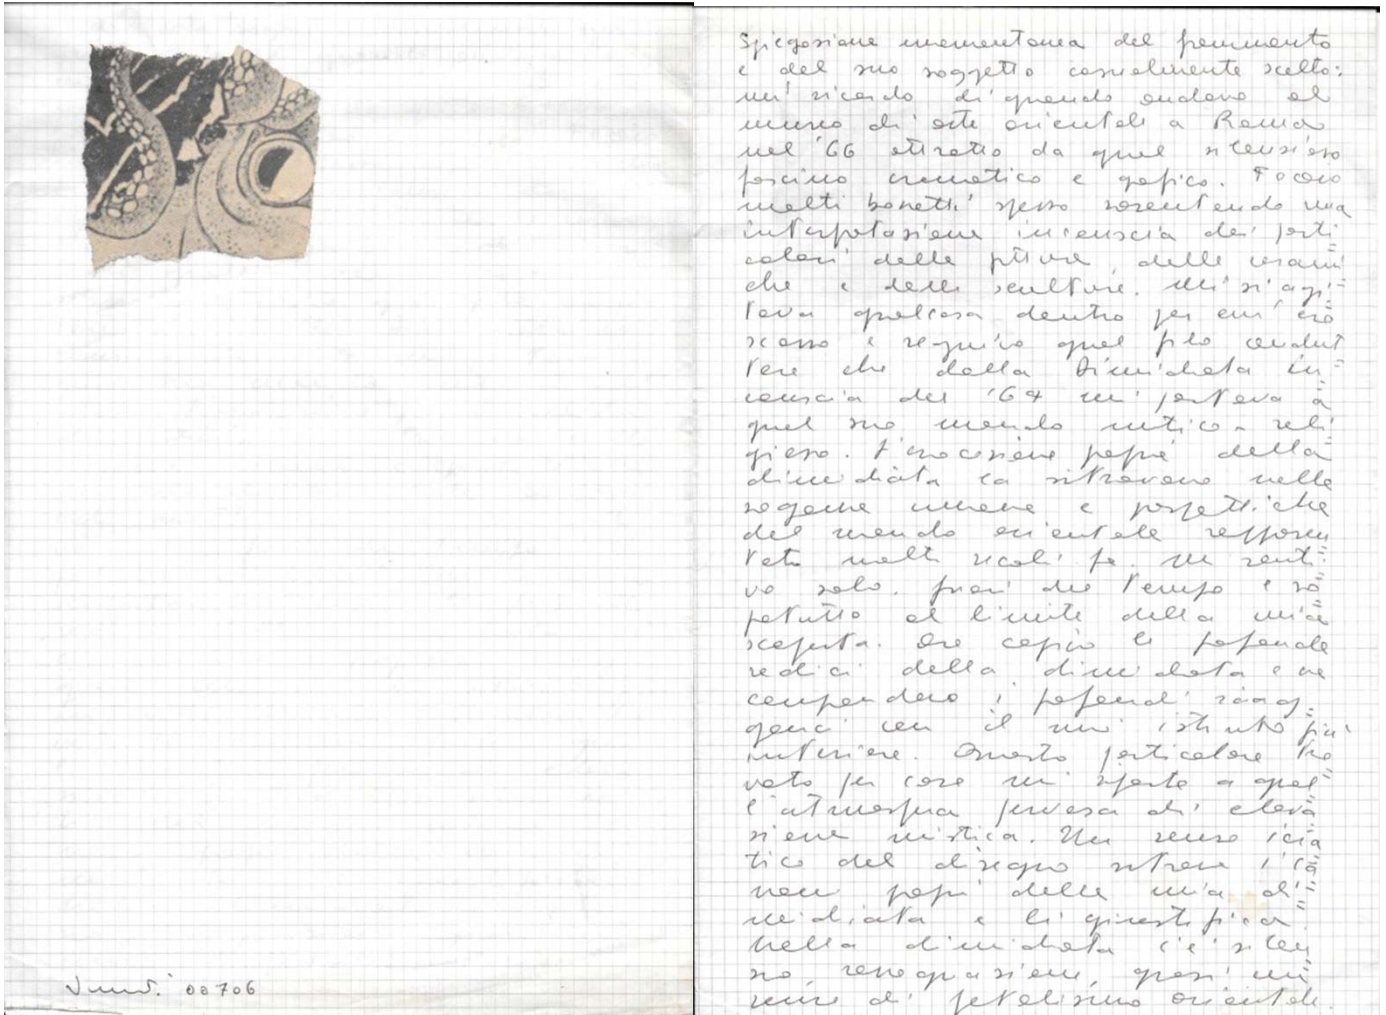 00706
Spiegazione momentanea del frammento
e del suo soggetto casualmente scelto:
mi ricordo di quando andavo al
museo di arte orientale a Roma
nel '66 attratto da quel silenzioso
fascino cromatico e grafico. Facevo
molti bozzetti spesso
interpretazione inconscia dei parti=
colari delle pitture, delle cerami=
che e delle sculture. Mi si agi=
tava qualcosa dentro per cui ero
scosso e seguivo quel filo condut=
tore che dalla Dimidiata in=
conscia del '64 mi portava a
quel suo mondo mitico-reli=
gioso. L'evocazione propria della
dimidiata la ritrovavo nelle
sagome umane e prospettiche
del mondo orientale rappresen=
tato molti secoli fa. Mi senti=
vo solo, fuori del tempo e so=
pratutto al limite della mia
scoperta. Ora capisco le profonde
radici della dimidiata e ne
comprendevo i profondi
con il mio istinto più
interiore. Questo particolare tro=
vato per caso mi riporta a quel=
l'atmosfera pervasa di eleva=
zione mistica. Un senso
tico del disegno
propri della mia di=
midiata e li giustifica.
Nella dimidiata c'è silen=
zio, rassegnazione, quasi un
senso di fatalismo orientale.